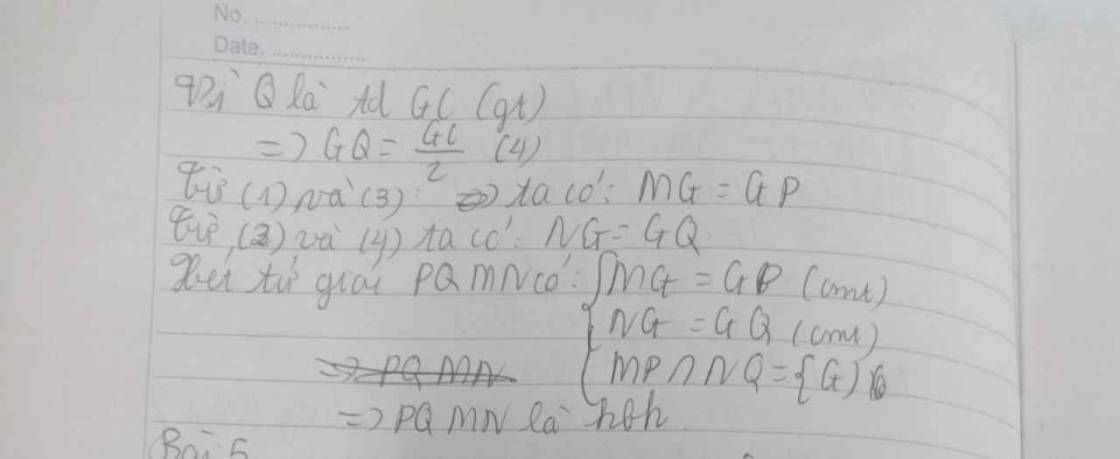 No. ...............
Date. ...............
Vì Q là td GC (gt)
=> GQ = GC/2 (4)
Từ (1) và (3): => ta có: MG = GP
Từ (2) và (4) ta có: NG = GQ
Xét tứ giác PQMN có: { MG = GP (cmt)
NG = GQ (cmt)
MP ∩ NQ = {G}
=> PQMN
=> PQMN là hbh
Bài 5